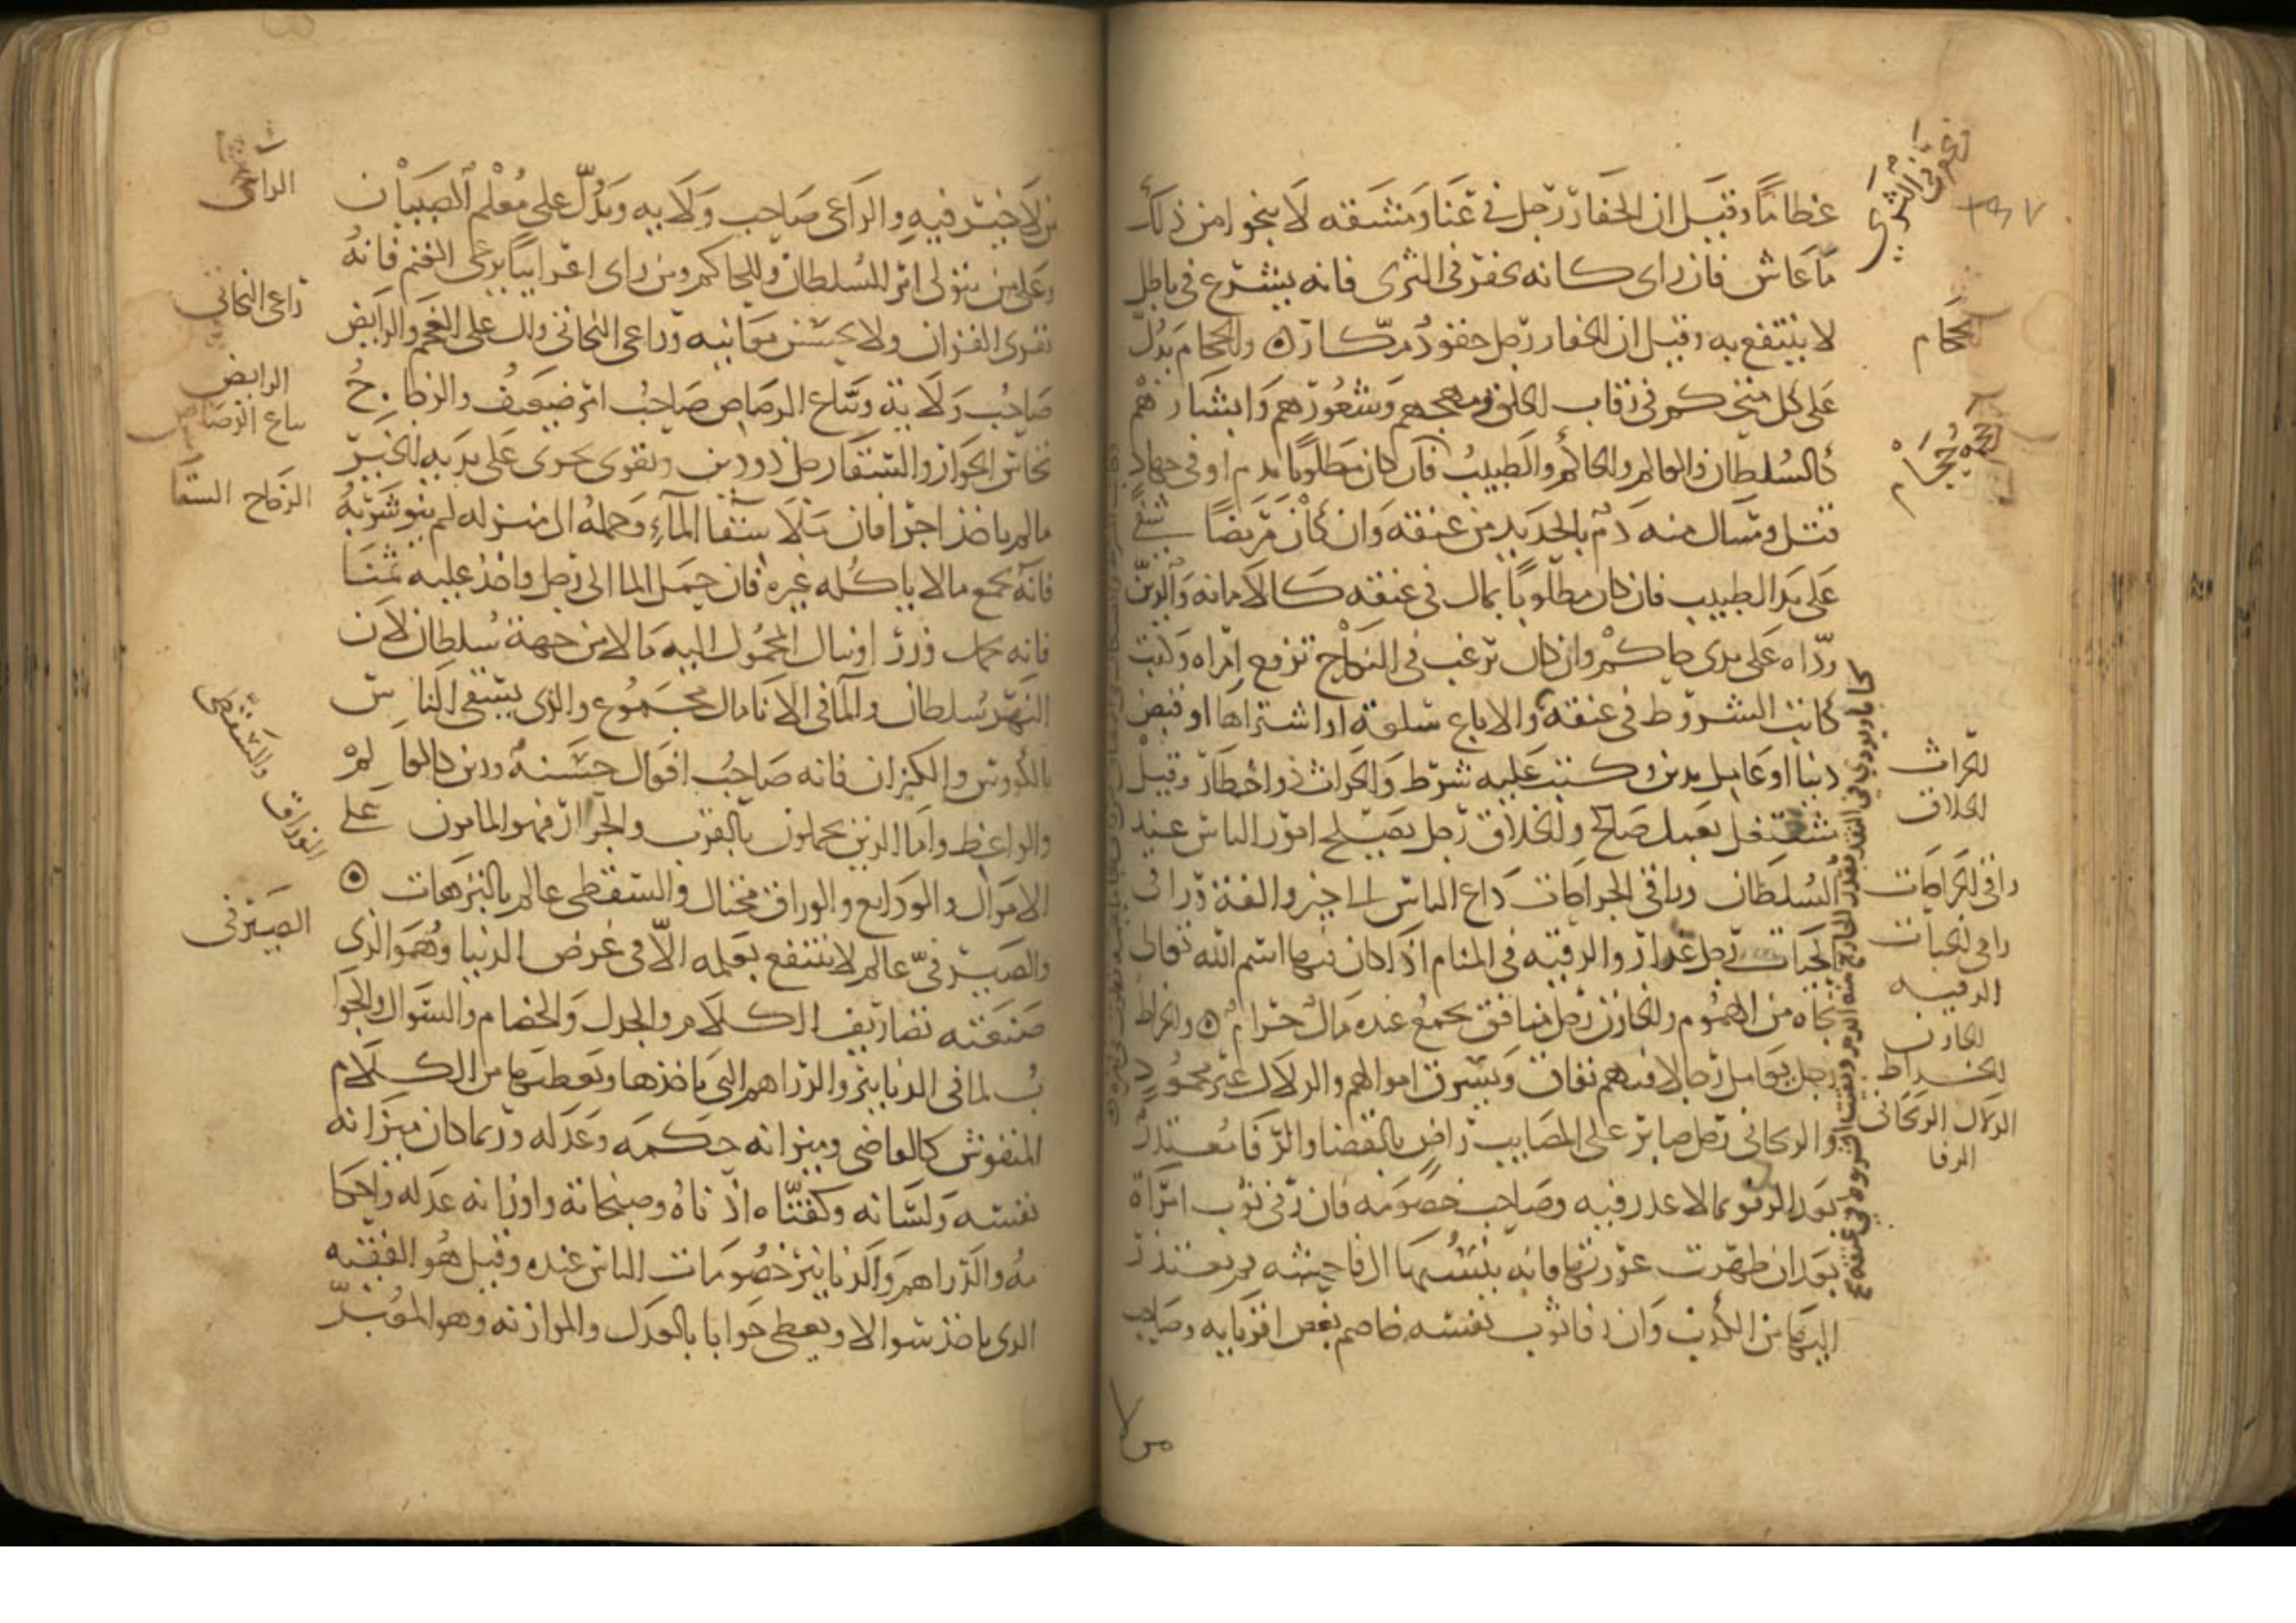 عظاما وقيل ان الحفار رجل في عنا ومشقه لا ينجوا من ذلك
ما عاش فان راى كانه يحفر في الثرى فانه يشرع في باطل
لا ينتفع به وقيل ان الحفار رجل حقود مكار ۞ والحجام يدل
على كل متحكم في رقاب الخلق ومهجهم وشعورهم وابشارهم
كالسلطان والعالم والحاكم والطبيب فان كان مطلوبا بدم او في جهاد
قتل وسال منه دم بالحديد من عنقه وان كان مريضا شفي
على يد الطبيب فان كان مطلوبا بمال في عنقه كالامانه والدين
ردّاه على يدي حاكم وان كان يرغب في النكاح تزوج امراه وكتبت
كانت الشروط في عنقه والا باع سلعة او اشتراها او قبض
دينا او عامل بدين وكتبت عليه شرط والحراث ذو اخطار وقيل
مشتغل بعمل صالح والحلاق رجل يصلح امور الناس عند
السلطان وراقي الجراحات داع الناس الى خير والفة وراقي
الحيات رجل غدار والرقيه في المنام اذا كان فيها اسم الله تعالى
نجاه من الهموم والخازن رجل منافق يجمع عنده مال حرام ۞ والخراط
رجل يعامل رجالا فيهم نفاق ويسرق اموالهم والدلال غير محمود
والريحاني رجل صابر على المصايب راض بالقضا والرفا معتذر
بعد الرفو بما لا عذر فيه وصاحب خصومه فان رفى ثوب امراة
بعد ان ظهرت عورتها فانه ينسبها الى فاحشه ثم يعتذر
اليها من الكذب وان رفا ثوب نفسه خاصم بعض اقربايه وصاحب
من لا
يحفر في الثرى
الحجام
الحراث
الحلاق
راقي الجراحات
راقي الحيات
الرقيه
الخازن
الخراط
الدلال الريحاني
الرفا
من لا خير فيه والراعي صاحب ولايه ويدل على معلم الصبيان
وعلى من يتولى امر للسلطان وللحاكم ومن راى اعرابيا يرعى الغنم فانه
يقرى القران ولا يحسن معانيه وراعي النحاتي وال على العجم والرايض
صاحب ولاية وبياع الرصاص صاحب امر ضعيف والزجاج
نخاس الجوار والسقا رجل ذو دين وتقوى يجري على يديه الخير
ما لم ياخذ اجرا فان ملا سقا المآء وحمله الى منزله لم ينو شربه
فانه يجمع مالا ياكله غيره فان حمل الما الى رجل واخذ عليه ثمنا
فانه حمل وزر او نال المحمول اليه مالا من جهة سلطان لان
النهر سلطان والما في الانا مال مجموع والذي يسقي الناس
بالكووس والكيزان فانه صاحب افعال حسنه ودين كالعالم
والواعظ واما الذين يحملون بالقرب والجرار فهم المامون على
الاموال والودايع والوراق محتال والسقطي عالم بالنزهات ۞
والصيرفيّ عالم لا ينتفع بعلمه الّا في غرض الدنيا وهو الذي
صنعته تصاريف الكلام والجدل والخصام والسوال والجوا
ب لما في الدنانير والدراهم التي ياخذها ويعطيها من الكلام
المنقوش كالقاضي وميزانه حكمه وعدله وربما كان ميزانه
نفسه ولسانه وكفتاه اذناه وصنجاته واوزانه عدله واحكا
مه والدراهم والدنانير خصومات الناس عنده وقيل هو الفقيه
الذي ياخذ سوالا ويعطي جوابا بالعدل والموازنه وهو المعبر
الراعي
راعي النحاتي
الرايض
بياع الرصاص
الزجاج السقا
الوراق والسقطي
الصيرفي